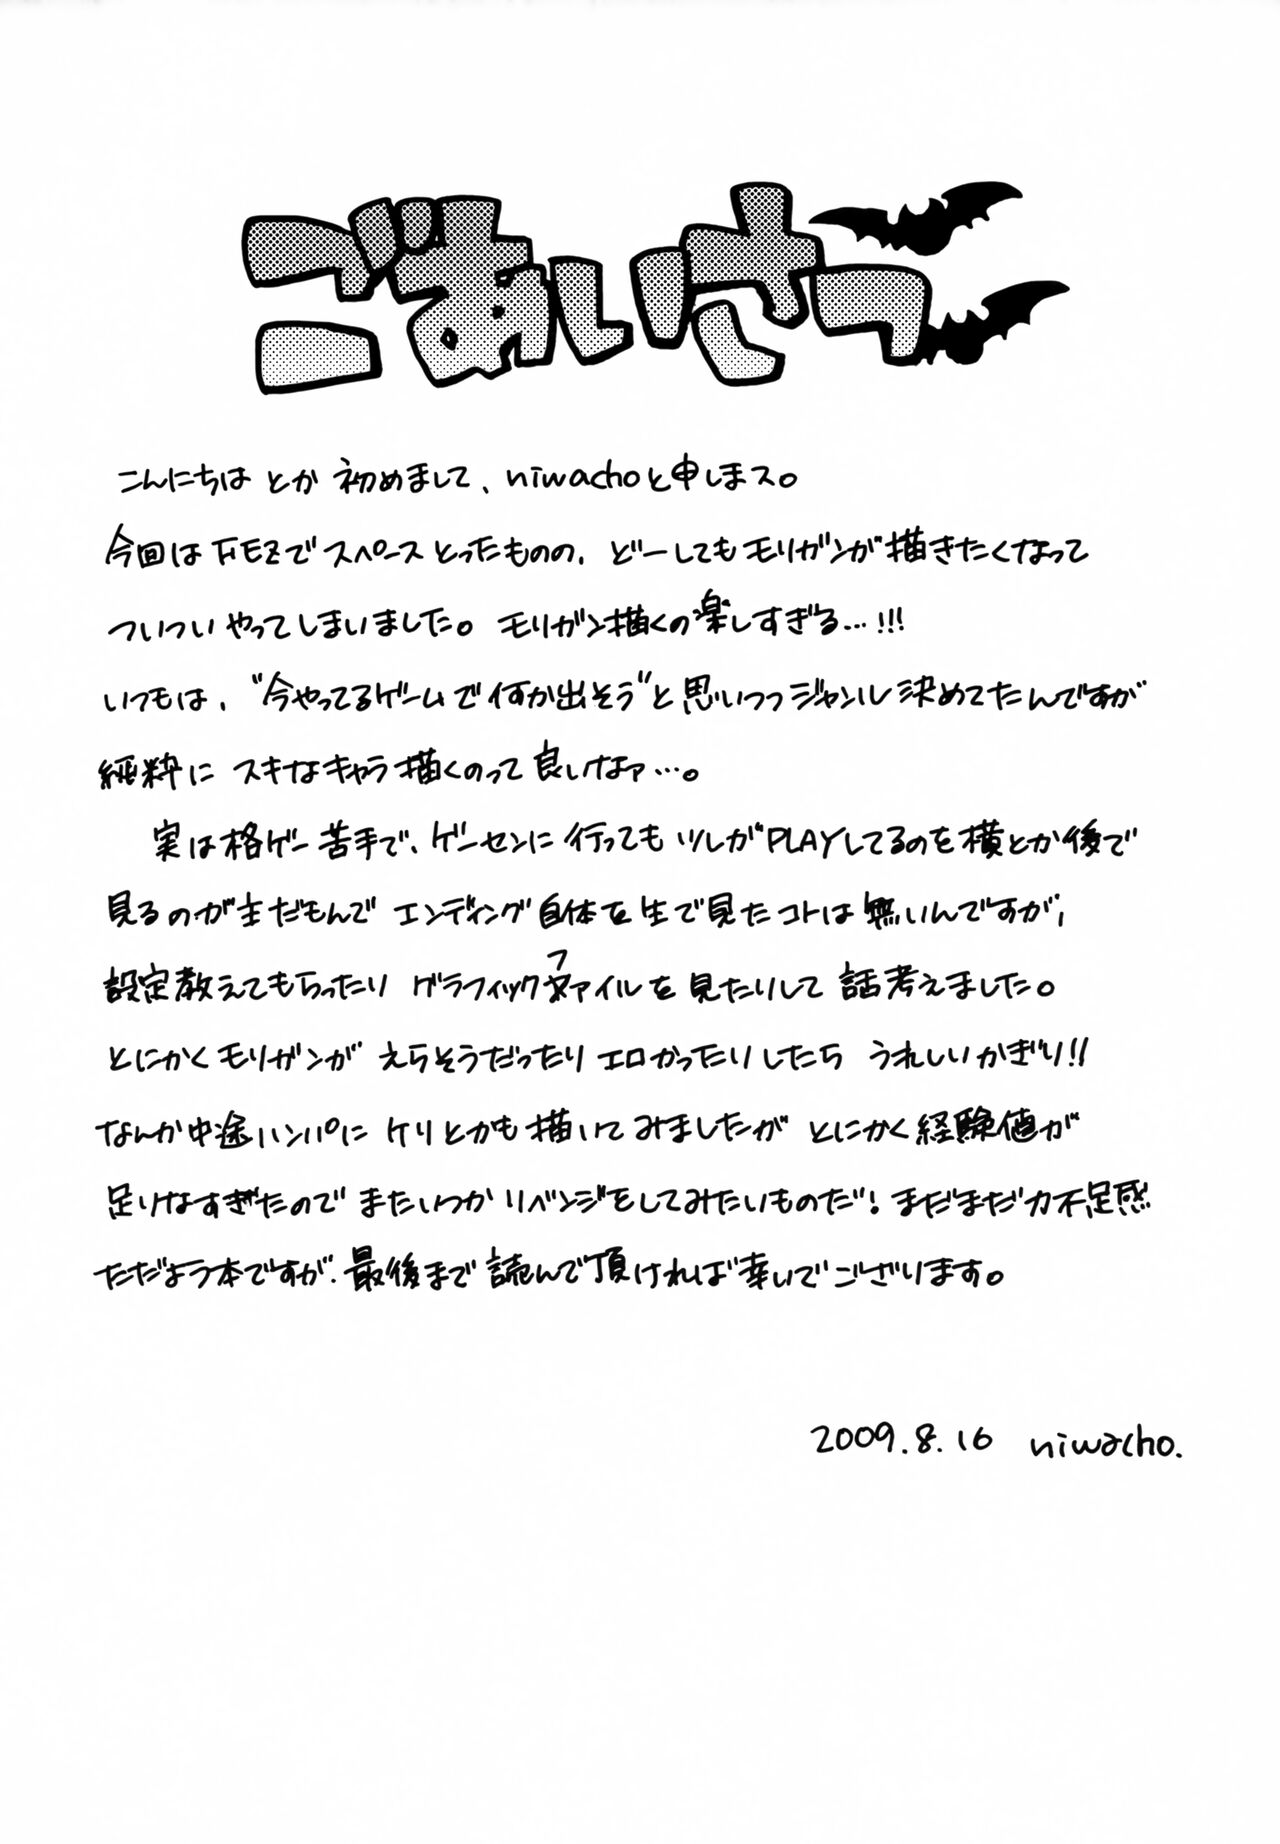 ごあいさつ
こんにちはとか初めまして、niwachoと申しまス。
今回はFEZでスペースとったものの、どーしてもモリガンが描きたくなって
ついついやってしまいました。モリガン描くの楽しすぎる…!!!
いつもは、"今やってるゲームで何か出そう"と思いつつジャンル決めてたんですが
純粋にスキなキャラ描くのって良いなァ…。
実は格ゲー苦手で、ゲーセンに行ってもツレがPLAYしてるのを横とか後で
見るのが主だもんでエンディング自体を生で見たコトは無いんですが、
設定教えてもらったりグラフィックファイルを見たりして話考えました。
とにかくモリガンがえらそうだったりエロかったりしたらうれしいかぎり!!
なんか中途ハンパにケリとかも描いてみましたがとにかく経験値が
足りなすぎたのでまたいつかリベンジをしてみたいものだ!まだまだ力不足感
ただよう本ですが、最後まで読んで頂ければ幸いでございます。
2009.8.16 niwacho.